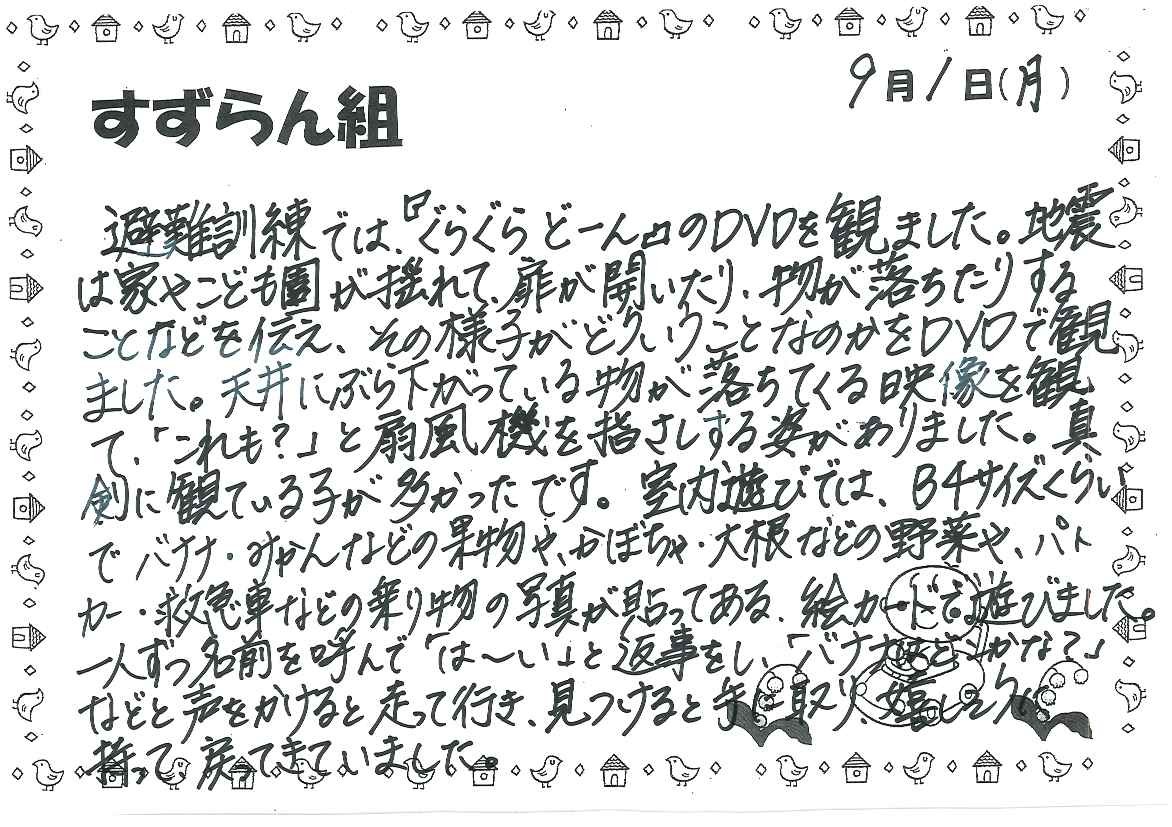 9月1日(月)
すずらん組
避難訓練では、『ぐらぐらどーん』のDVDを観ました。地震
は家やこども園が揺れて、扉が開いたり、物が落ちたりする
ことなどを伝え、その様子がどういうことなのかをDVDで観
ました。天井にぶら下がっている物が落ちてくる映像を観
て、「これも?」と扇風機を指さしする姿がありました。真
剣に観ている子が多かったです。室内遊びでは、B4サイズくらい
でバナナ・みかんなどの果物や、かぼちゃ・大根などの野菜や、パト
カー・救急車などの乗り物の写真が貼ってある、絵カードで遊びました。
一人ずつ名前を呼んで「は~い」と返事をし、「バナナはどれかな?」
などと声をかけると走って行き、見つけると手に取り、嬉しそうに
持って、戻ってきていました。